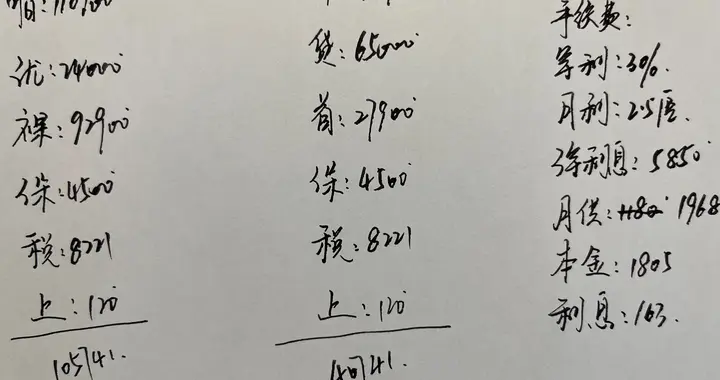 优:24000
裸:92900
保:4500
税:8221
上:120
105741.
贷:65000
首:27900
保:4500
税:8221
上:120
40741.
手续费:
年利:3%.
月利:2.5厘.
利息:5850
月供: 1968
本金:1805
利息:163.